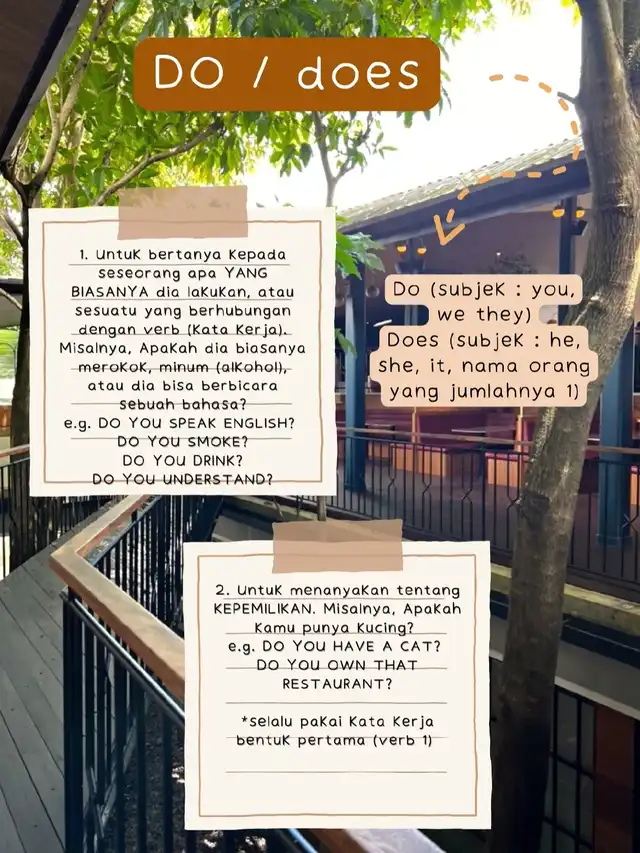 DO / does
1. Untuk bertanya kepada
seseorang apa YANG
BIASANYA dia lakukan, atau
sesuatu yang berhubungan
dengan verb (kata kerja).
Misalnya, Apakah dia biasanya
merokok, minum (alkohol),
atau dia bisa berbicara
sebuah bahasa?
e.g. DO YOU SPEAK ENGLISH?
DO YOU SMOKE?
DO YOU DRINK?
DO YOU UNDERSTAND?
Do (subjek : you,
we they)
Does (subjek : he,
she, it, nama orang
yang jumlahnya 1)
2. Untuk menanyakan tentang
KEPEMILIKAN. Misalnya, Apakah
kamu punya kucing?
e.g. DO YOU HAVE A CAT?
DO YOU OWN THAT
RESTAURANT?
*selalu pakai kata kerja
bentuk pertama (verb 1)